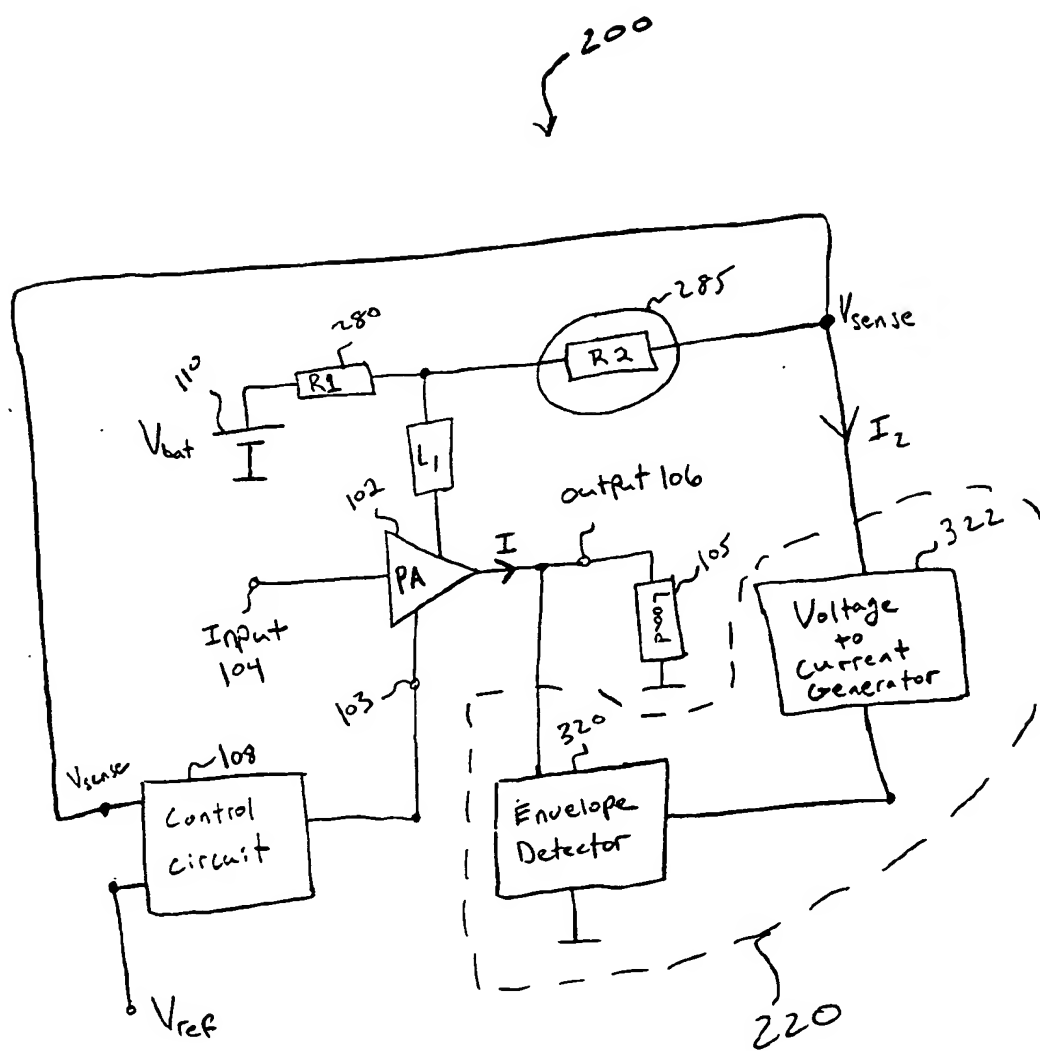 200
285
280
Vsense
R2
110
R1
Vbat
I2
L1
output 106
102
322
I
105
PA
Load
Voltage
to
Current
Generator
Input
104
103
320
108
Vsense
Control
circuit
Envelope
Detector
Vref
220